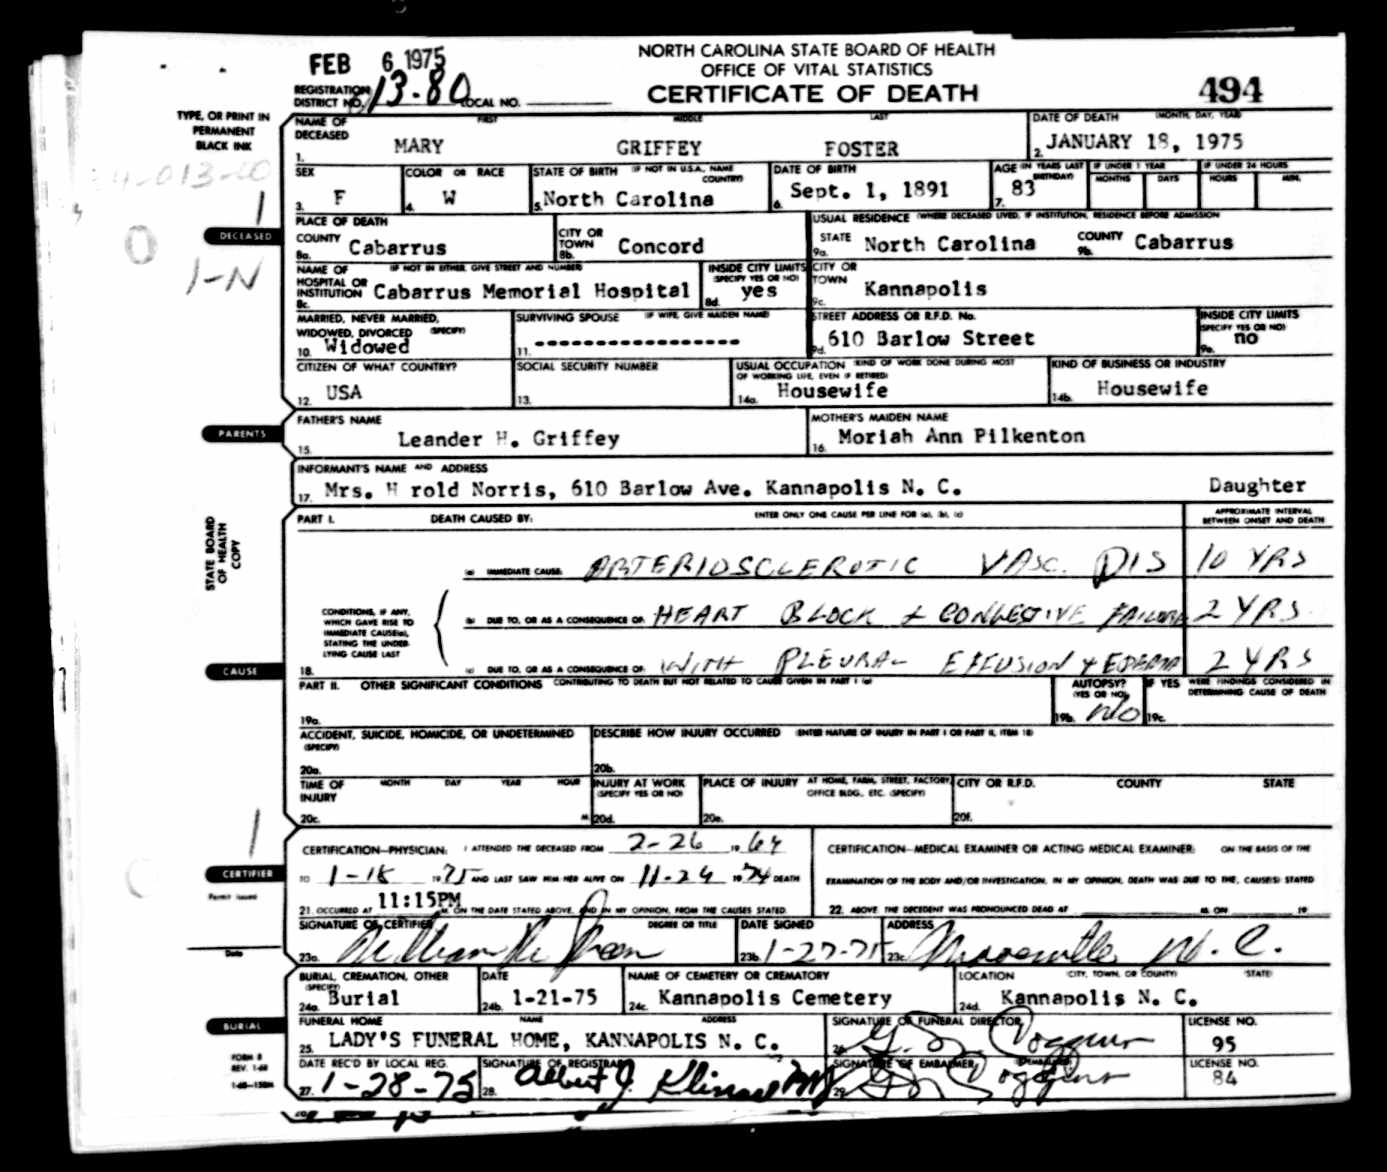 FEB 6 1975
NORTH CAROLINA STATE BOARD OF HEALTH
OFFICE OF VITAL STATISTICS
CERTIFICATE OF DEATH
494
REGISTRATION DISTRICT NO. 13-80 LOCAL NO.
TYPE, OR PRINT IN
PERMANENT
BLACK INK
NAME OF DECEASED FIRST MIDDLE LAST
1. MARY GRIFFEY FOSTER
DATE OF DEATH (MONTH, DAY, YEAR)
2. JANUARY 18, 1975
SEX
3. F
COLOR OR RACE
4. W
STATE OF BIRTH (IF NOT IN U.S.A., NAME COUNTRY)
5. North Carolina
DATE OF BIRTH
6. Sept. 1, 1891
AGE (IN YEARS LAST BIRTHDAY)
7. 83
IF UNDER 1 YEAR
MONTHS DAYS
IF UNDER 24 HOURS
HOURS MIN.
DECEASED
1-N
PLACE OF DEATH
COUNTY
8a. Cabarrus
CITY OR TOWN
8b. Concord
USUAL RESIDENCE (WHERE DECEASED LIVED, IF INSTITUTION, RESIDENCE BEFORE ADMISSION
STATE
9a. North Carolina
COUNTY
9b. Cabarrus
NAME OF HOSPITAL OR INSTITUTION (IF NOT IN EITHER, GIVE STREET AND NUMBER)
8c. Cabarrus Memorial Hospital
INSIDE CITY LIMITS (SPECIFY YES OR NO)
8d. yes
CITY OR TOWN
9c. Kannapolis
MARRIED, NEVER MARRIED, WIDOWED, DIVORCED (SPECIFY)
10. Widowed
SURVIVING SPOUSE (IF WIFE, GIVE MAIDEN NAME)
11. -----------------
STREET ADDRESS OR R.F.D. No.
9d. 610 Barlow Street
INSIDE CITY LIMITS (SPECIFY YES OR NO)
9e. no
CITIZEN OF WHAT COUNTRY?
12. USA
SOCIAL SECURITY NUMBER
13.
USUAL OCCUPATION (KIND OF WORK DONE DURING MOST OF WORKING LIFE, EVEN IF RETIRED)
14a. Housewife
KIND OF BUSINESS OR INDUSTRY
14b. Housewife
PARENTS
FATHER'S NAME
15. Leander H. Griffey
MOTHER'S MAIDEN NAME
16. Moriah Ann Pilkenton
INFORMANT'S NAME AND ADDRESS
17. Mrs. H rold Norris, 610 Barlow Ave. Kannapolis N. C. Daughter
STATE BOARD
OF HEALTH
COPY
PART I. DEATH CAUSED BY: ENTER ONLY ONE CAUSE PER LINE FOR (a), (b), (c)
APPROXIMATE INTERVAL BETWEEN ONSET AND DEATH
(a) IMMEDIATE CAUSE: ARTERIOSCLEROTIC VASC. DIS 10 YRS
CONDITIONS, IF ANY, WHICH GAVE RISE TO IMMEDIATE CAUSE(a), STATING THE UNDERLYING CAUSE LAST
(b) DUE TO, OR AS A CONSEQUENCE OF: HEART BLOCK + CONGESTIVE FAILURE 2 YRS.
CAUSE
18. (c) DUE TO, OR AS A CONSEQUENCE OF: WITH PLEURAL EFFUSION + EDEMA 2 YRS
PART II. OTHER SIGNIFICANT CONDITIONS CONTRIBUTING TO DEATH BUT NOT RELATED TO CAUSE GIVEN IN PART I (a)
19a.
AUTOPSY? (YES OR NO)
19b. no
IF YES WERE FINDINGS CONSIDERED IN DETERMINING CAUSE OF DEATH
19c.
ACCIDENT, SUICIDE, HOMICIDE, OR UNDETERMINED (SPECIFY)
20a.
DESCRIBE HOW INJURY OCCURRED (ENTER NATURE OF INJURY IN PART I OR PART II, ITEM 18)
20b.
TIME OF INJURY MONTH DAY YEAR HOUR
20c. M.
INJURY AT WORK (SPECIFY YES OR NO)
20d.
PLACE OF INJURY AT HOME, FARM, STREET, FACTORY, OFFICE BLDG., ETC. (SPECIFY)
20e.
CITY OR R.F.D. COUNTY STATE
20f.
CERTIFIER
Permit issued
Date
CERTIFICATION—PHYSICIAN: I ATTENDED THE DECEASED FROM 2-26 1964
TO 1-18 1975 AND LAST SAW HIM HER ALIVE ON 11-26 1974 DEATH
21. OCCURRED AT 11:15PM M. ON THE DATE STATED ABOVE, AND IN MY OPINION, FROM THE CAUSES STATED.
CERTIFICATION—MEDICAL EXAMINER OR ACTING MEDICAL EXAMINER: ON THE BASIS OF THE
EXAMINATION OF THE BODY AND/OR INVESTIGATION, IN MY OPINION, DEATH WAS DUE TO THE, CAUSE(S) STATED
22. ABOVE. THE DECEDENT WAS PRONOUNCED DEAD AT M. ON 19
SIGNATURE OF CERTIFIER DEGREE OR TITLE
23a. William
DATE SIGNED
23b. 1-27-75
ADDRESS
23c. Mooresville N. C.
BURIAL
BURIAL, CREMATION, OTHER (SPECIFY)
24a. Burial
DATE
24b. 1-21-75
NAME OF CEMETERY OR CREMATORY
24c. Kannapolis Cemetery
LOCATION (CITY, TOWN, OR COUNTY) (STATE)
24d. Kannapolis N. C.
FUNERAL HOME NAME ADDRESS
25. LADY'S FUNERAL HOME, KANNAPOLIS N. C.
SIGNATURE OF FUNERAL DIRECTOR
26.
LICENSE NO.
95
FORM 8
REV. 1-68
DATE REC'D BY LOCAL REG.
27. 1-28-75
SIGNATURE OF REGISTRAR
28. Albert J.
SIGNATURE OF EMBALMER
29.
LICENSE NO.
84